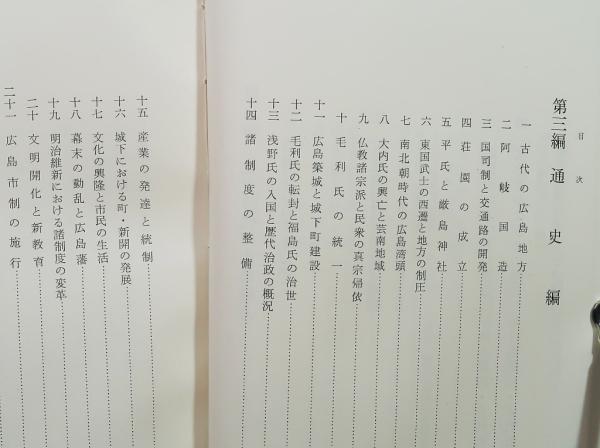 目次
第三編 通史編
一 古代の広島地方
二 阿岐国造
三 国司制と交通路の開発
四 荘園の成立
五 平氏と厳島神社
六 東国武士の西遷と地方の制圧
七 南北朝時代の広島湾頭
八 大内氏の興亡と芸南地域
九 仏教諸宗派と民衆の真宗帰依
十 毛利氏の統一
十一 広島築城と城下町建設
十二 毛利氏の転封と福島氏の治世
十三 浅野氏の入国と歴代治政の概況
十四 諸制度の整備
十五 産業の発達と統制
十六 城下における町・新開の発展
十七 文化の興隆と市民の生活
十八 幕末の動乱と広島藩
十九 明治維新における諸制度の変革
二十 文明開化と新教育
二十一 広島市制の施行